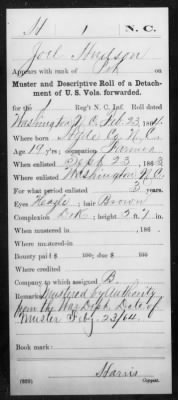 H | 1 | N. C.
Joel Hudson
Appears with rank of Pvt on
Muster and Descriptive Roll of a Detach-
ment of U. S. Vols. forwarded.
for the 1 Reg't N. C. Inf. Roll dated
Washington N.C. Feb. 23, 1864.
Where born Hyde Co. N.C.
Age 19 y'rs; occupation Farmer
When enlisted Sept 23, 1863
Where enlisted Washington N.C.
For what period enlisted 3 years.
Eyes Hazel; hair Brown
Complexion Dark; height 5 ft. 7 in.
When mustered in , 186 .
Where mustered in
Bounty paid $ 100; due $ 100
Where credited
Company to which assigned B
Remarks: Mustered by authority
from the War Dept. Date of
Muster Feby 23/64.
Book mark:
Harris
(339) Copyist.